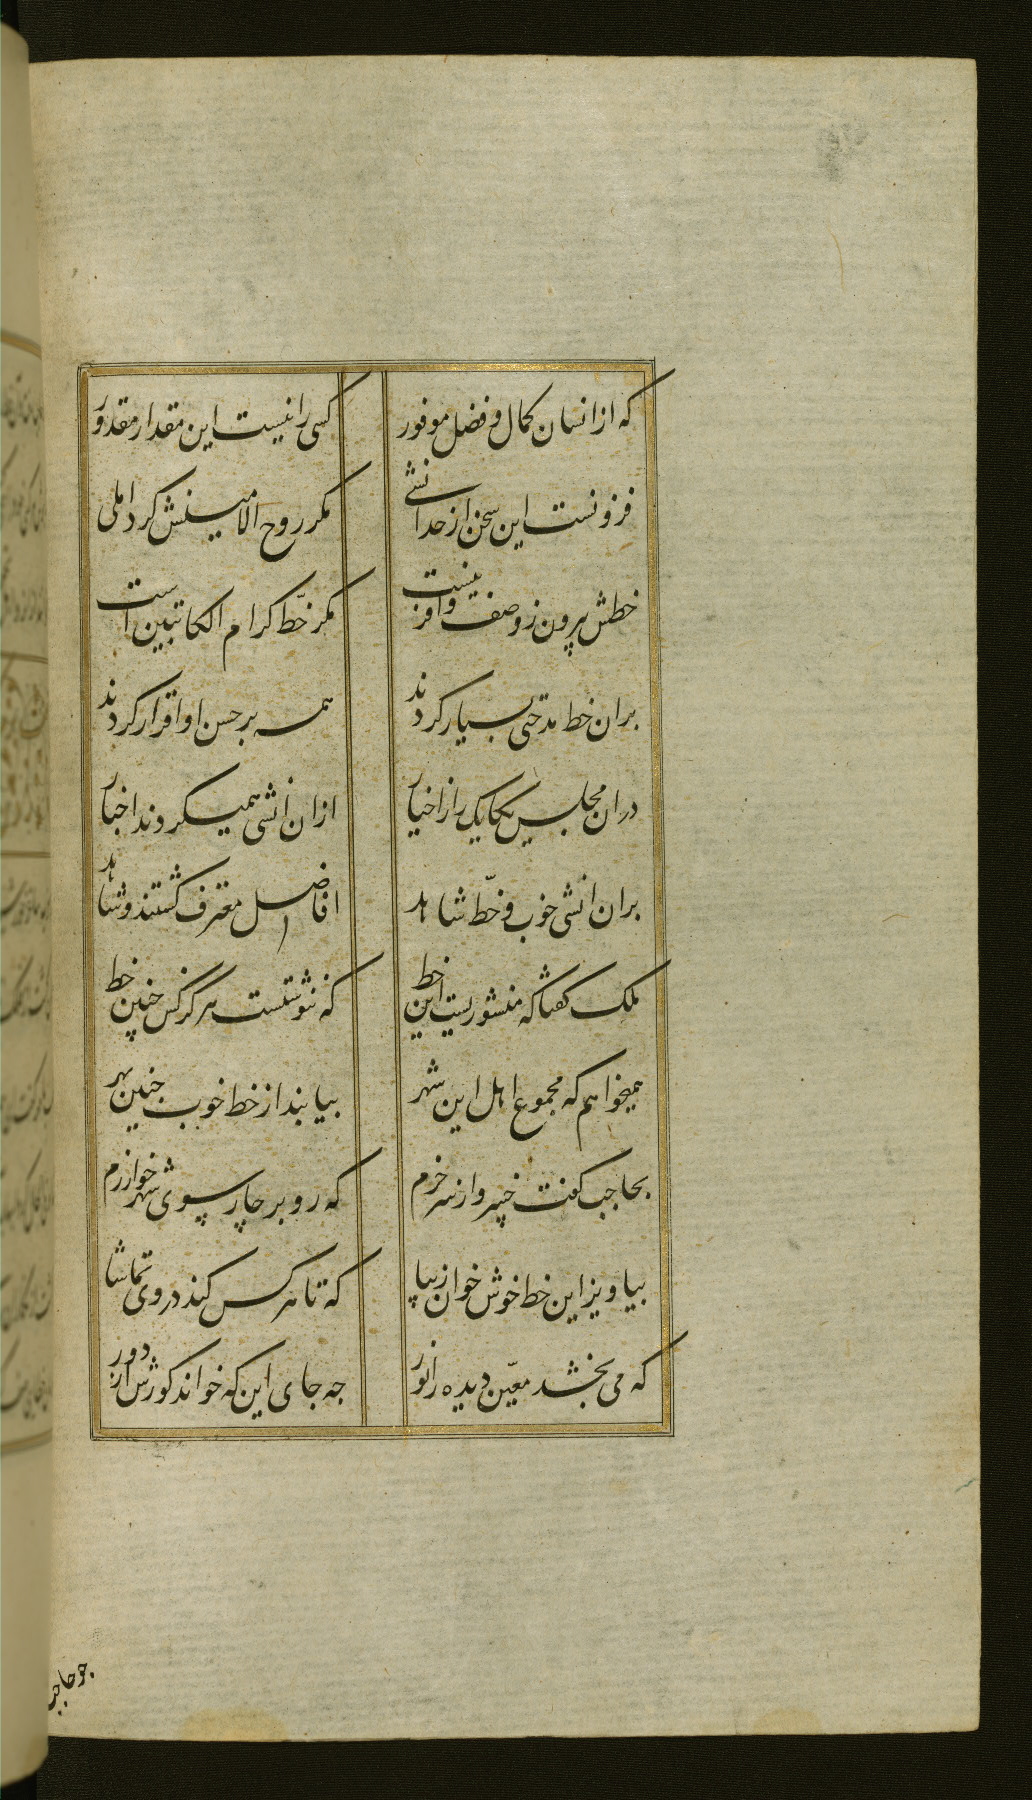 که از انسان کمال و فضل موفور
کسی را نیست این مقدار مقدور
فزونست این سخن از حد انشی
مکر روح الامینش کرد املی
خطش بیرون ز وصف وافرینست
مکر خطّ کرام الکاتبین است
بران خط مدحتی بسیار کردند
همه بر حسن او اقرار کردند
دران مجلس یکایک راز اخیار
ازان انشی همیکردند اخبار
بران انشی خوب و خطّ شاهد
افاضل معترف کشتند و شاهد
ملک کفتا که منشوریست این خط
که ننوشتست هرکز کس چنین خط
همیخواهم که مجموع اهل این شهر
بیابند از خط خوب چنین بهر
بحاجب کفت خیر و از سر خرم
که رو بر چارسوی شهر خوارزم
بیاویز این خط خوش خوان زیبا
که تا هر کس کند در وی تماشا
که می بخشد معیّن دیده را نور
جه جای این که خواند کورش از دور
جو حاجب